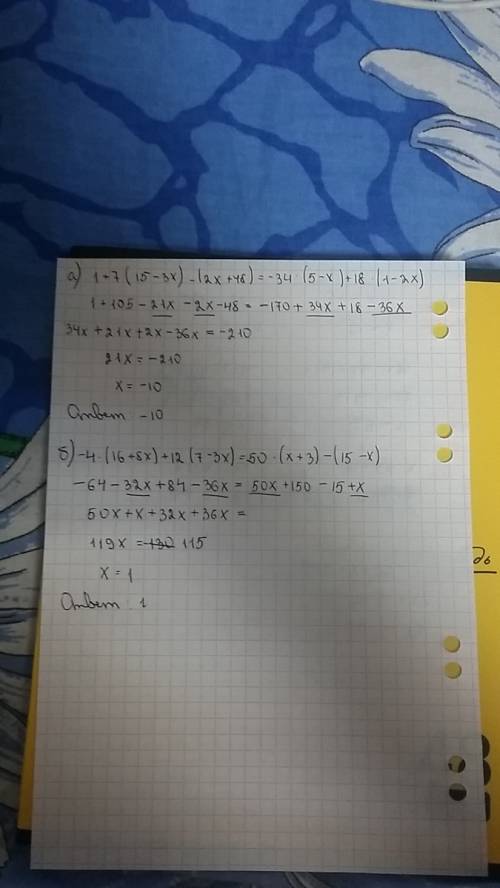 а) 1+7 (15-3x) -(2x+48) = -34 (5-x)+18 (1-2x)
1+105-21x-2x-48 = -170+34x+18-36x
34x+21x+2x-36x=-210
21x=-210
x=-10
Ответ -10
б)-4·(16+8x)+12(7-3x)=50·(x+3)-(15-x)
-64-32x+84-36x= 50x+150-15+x
50x+x+32x+36x=
119x =-130 115
x=1
Ответ: 1